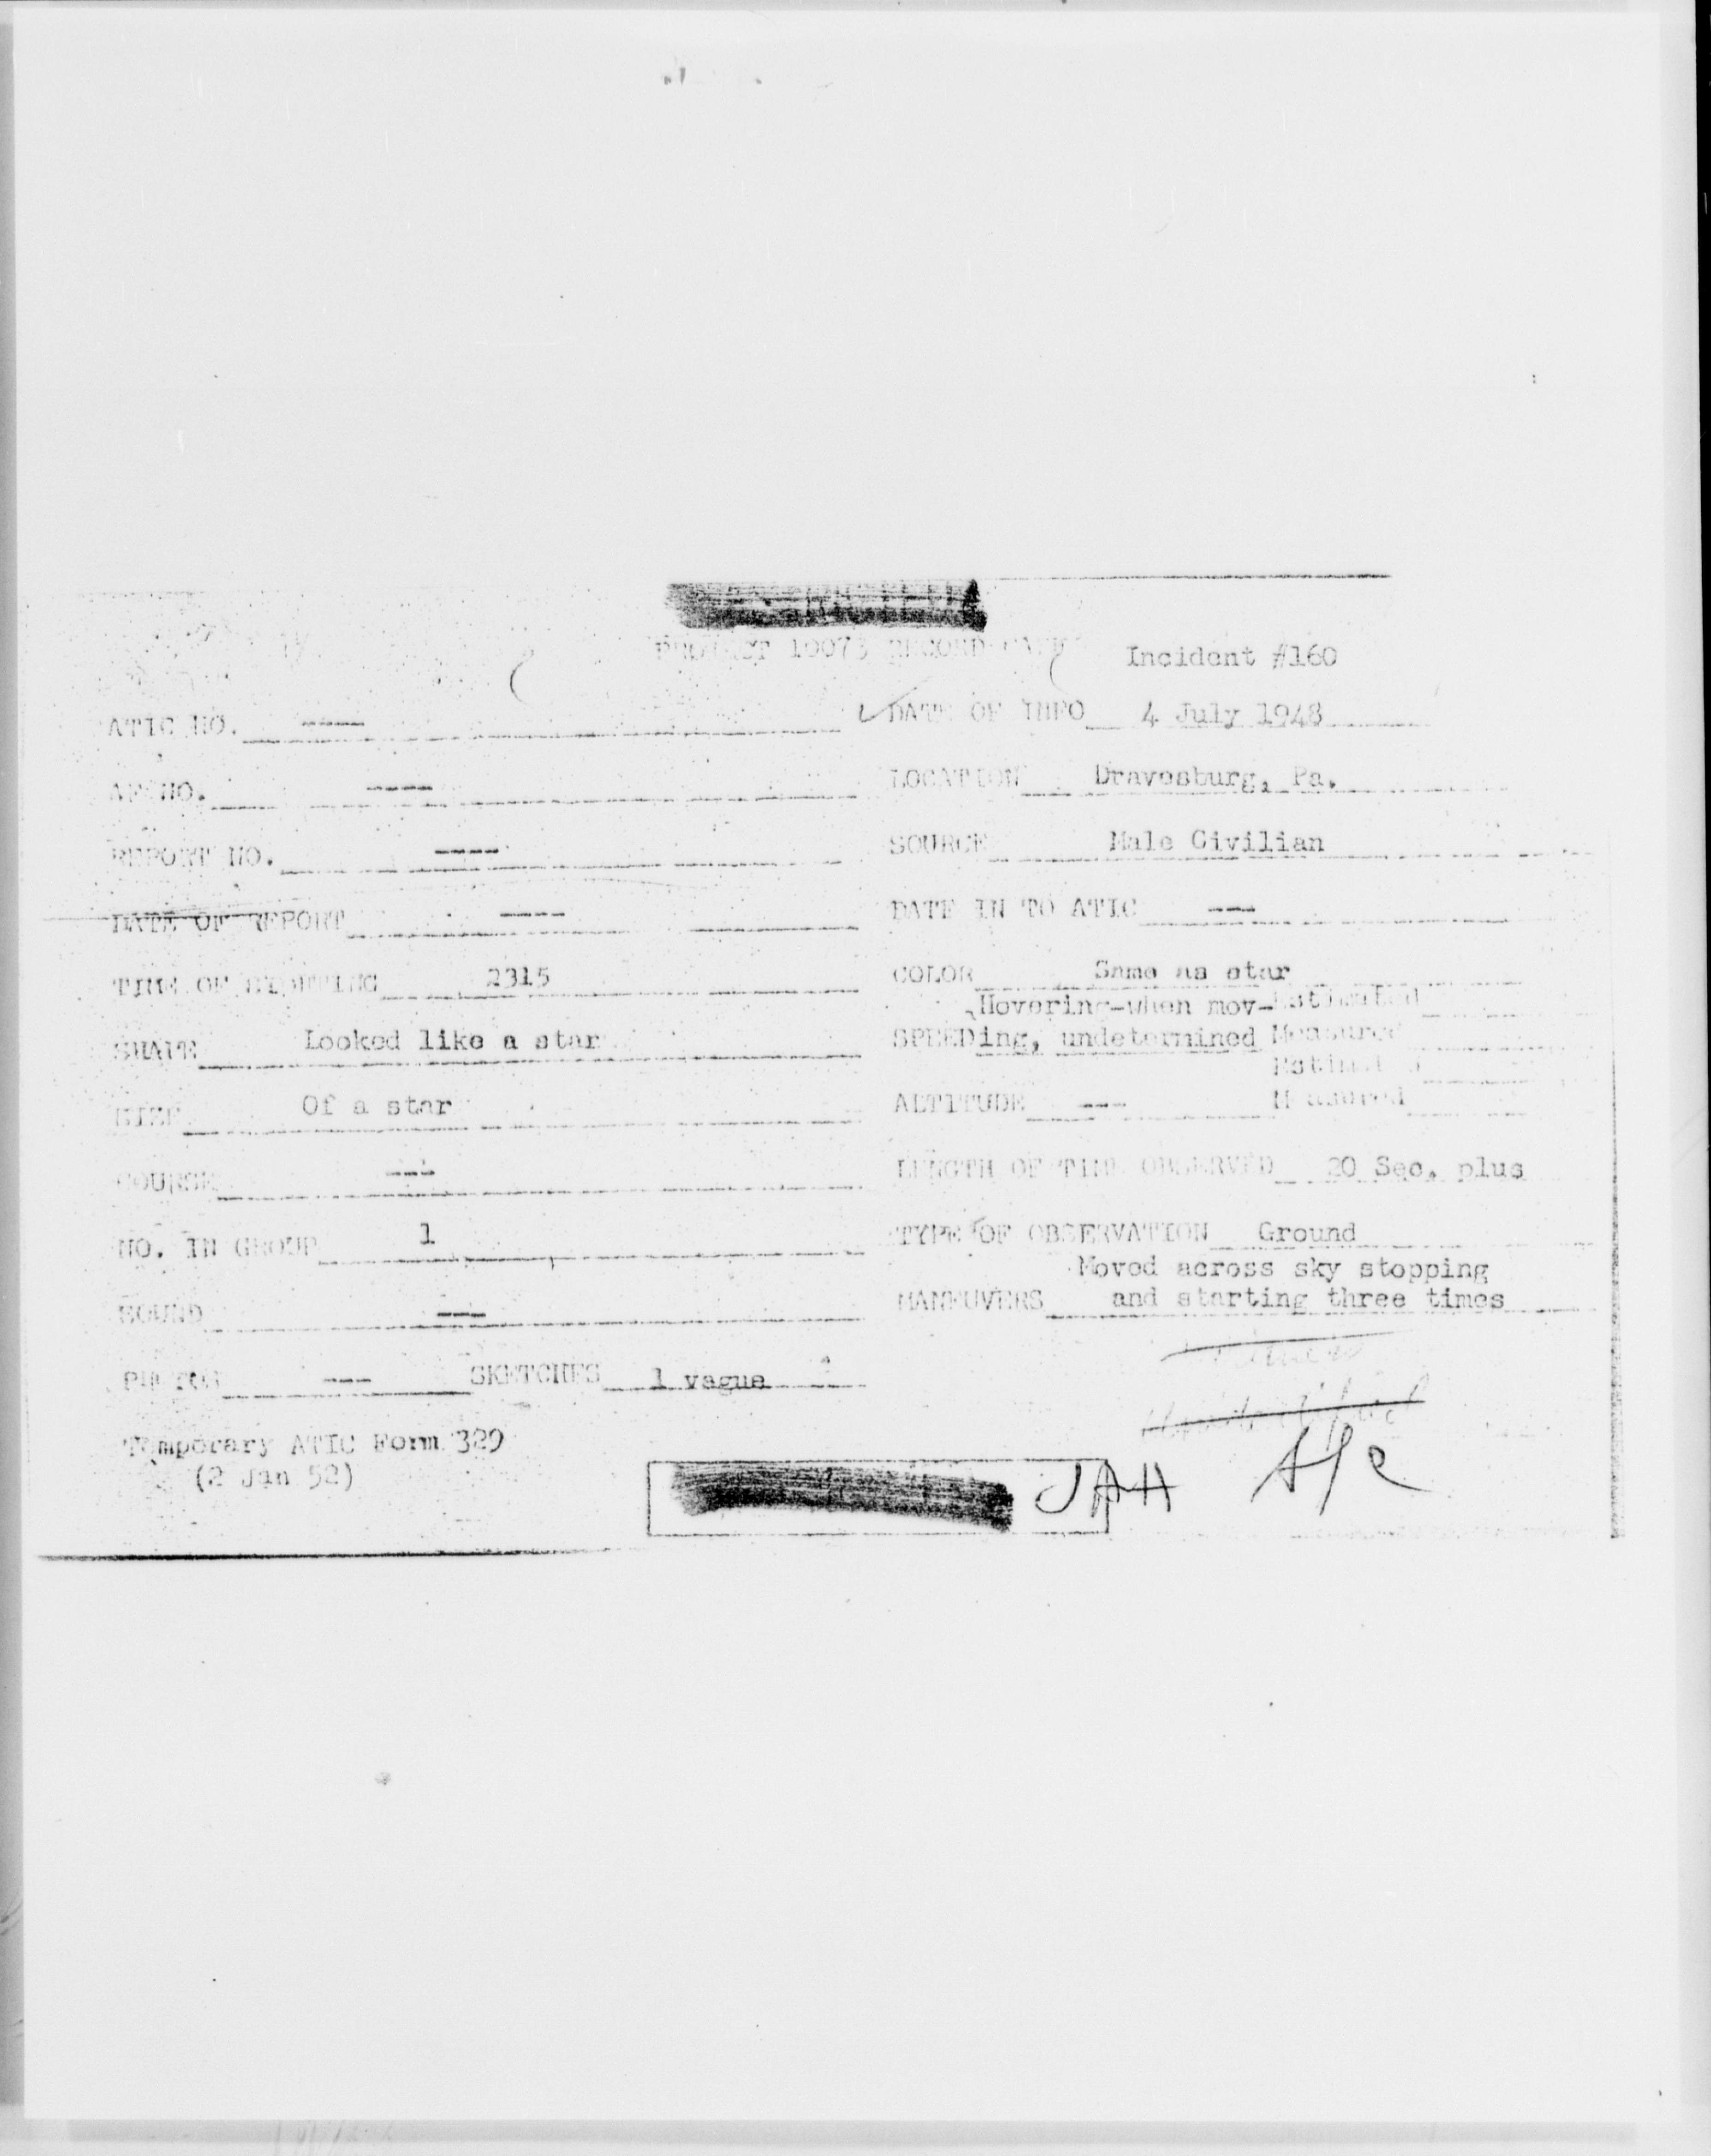 PROJECT 10073 RECORD CARD
Incident #160
ATIC NO. ----
DATE OF INFO 4 July 1948
AF NO. ----
LOCATION Dravosburg, Pa.
REPORT NO. ----
SOURCE Male Civilian
DATE OF REPORT ----
DATE IN TO ATIC ---
TIME OF SIGHTING 2315
COLOR Same as star
Hovering-when mov- Estimated
SHAPE Looked like a star
SPEED ing, undetermined Measured
Estimated
SIZE Of a star
ALTITUDE --- Measured
COURSE ---
LENGTH OF TIME OBSERVED 20 Sec. plus
NO. IN GROUP 1
TYPE OF OBSERVATION Ground
Moved across sky stopping
SOUND ---
MANEUVERS and starting three times
PHOTOS --- SKETCHES 1 vague
Unidentified
Temporary ATIC Form 329
(2 Jan 52)
JAH